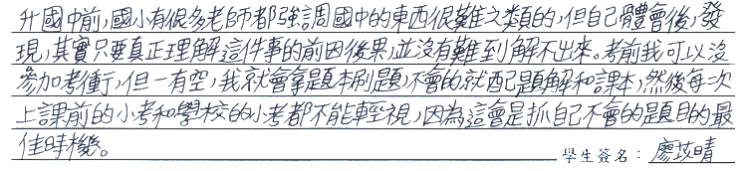 升國中前，國小有很多老師都強調國中的東西很難之類的，但自己體會後，發
現，其實只要真正理解這件事的前因後果，並沒有難到解不出來。考前我可以沒
參加考衝，但一有空，我就會拿題本刷題，不會的就配題解和課本，然後每一次
上課前的小考和學校的小考都不能輕視，因為這會是抓自己不會的題目的最
佳時機。
學生簽名：廖苡晴